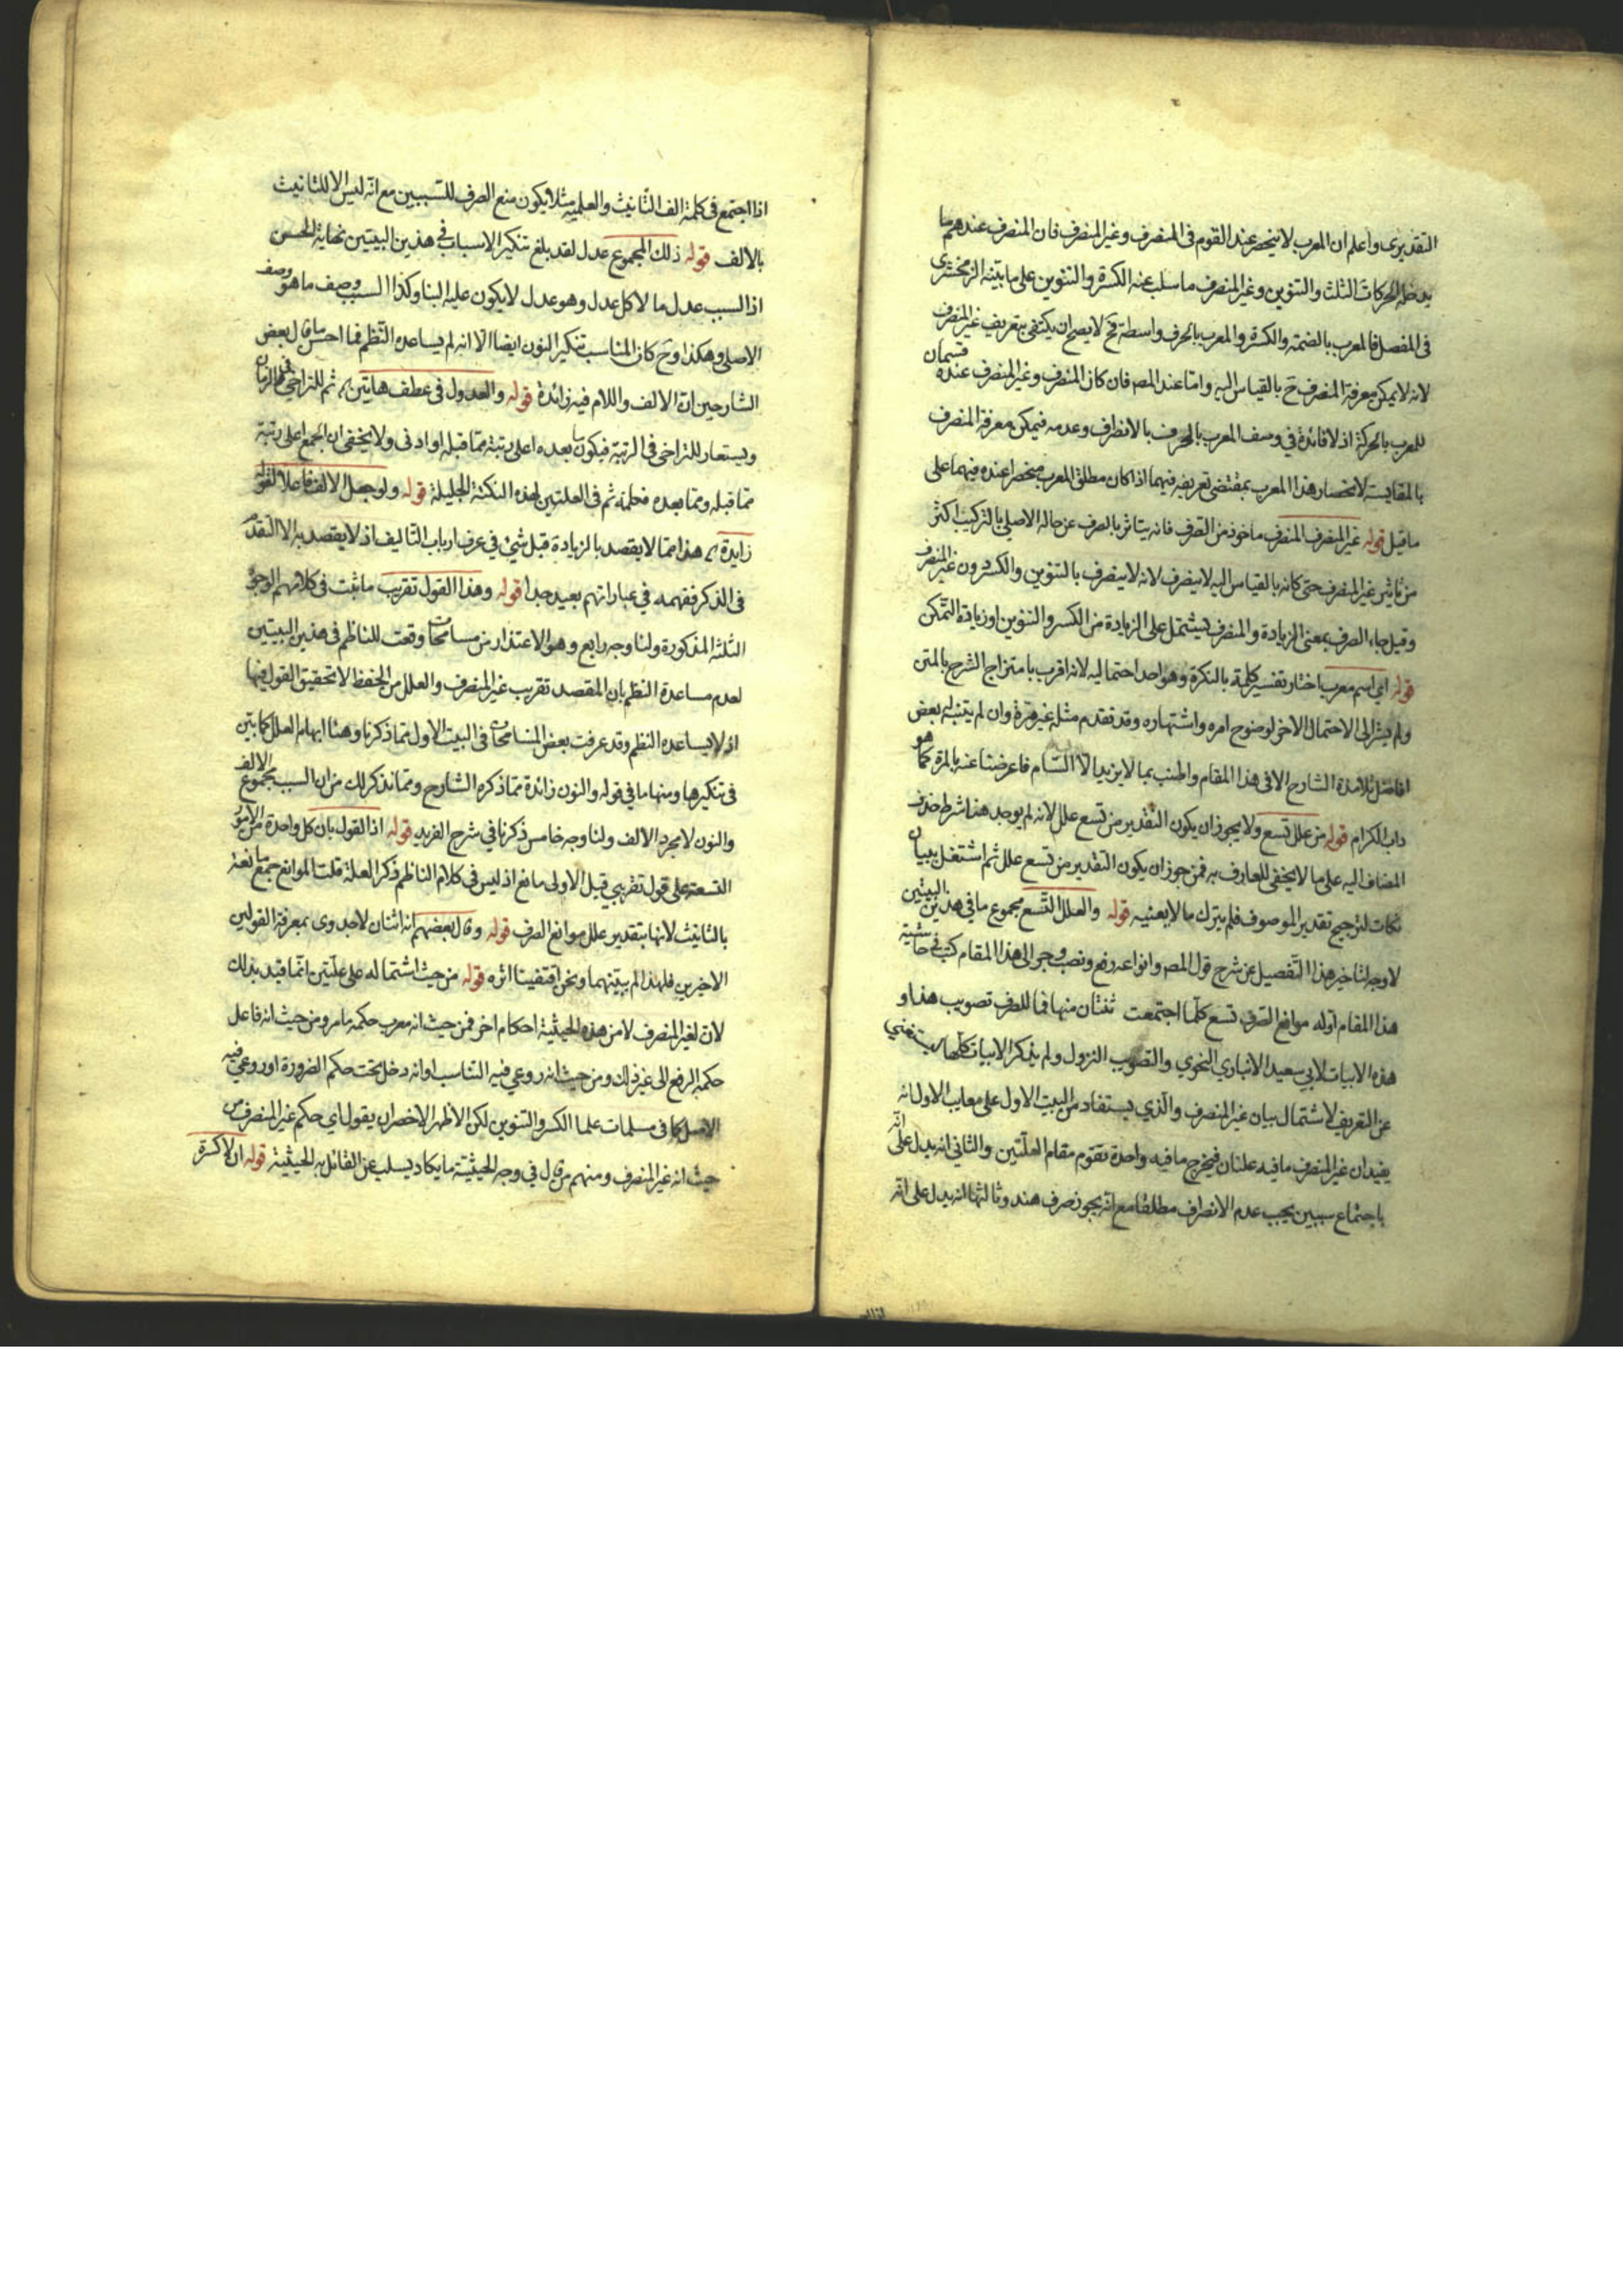 التقديرى واعلم ان المعرب لا ينحصر عند القوم فى المنصرف وغير المنصرف فان المنصرف عندهم ما
يدخله الحركات الثلث والتنوين وغير المنصرف ما سلب عنه الكسرة والتنوين على ما بينه الزمخشرى
فى المفصل فالمعرب بالضمة والكسرة والمعرب بالحرف واسطة فح لا يصح ان يكتفى بتعريف غير المنصرف
لانه لا يمكن معرفة المنصرف ح بالقياس اليه واما عند المصه فان كان المنصرف وغير المنصرف عنده قسمان
للمعرب بالحركة اذ لا فائدة فى وصف المعرب بالحروف بالانصراف وعدمه فيمكن معرفة المنصرف
بالمقايسة لانحصار هذا المعرب بمقتضى تعريفه فيهما اذا كان مطلق المعرب منحصرا عنده فيهما على
ما قيل قوله غير المنصرف المنصرف ماخوذ من الصرف فانه يتاثر بالصرف عن حاله الاصلى بالتركيب اكثر
من تاثير غير المنصرف حتى كانه بالقياس اليه لا ينصرف لانه لا ينصرف بالتنوين والكسر دون غير المنصرف
وقيل جاء الصرف بمعنى الزيادة والمنصرف يشتمل على الزيادة من الكسر والتنوين او زيادة التمكن
قوله اى اسم معرب اختار تفسير كلمة ما بالنكرة وهو احد احتماليه لانه اقرب بامتزاج الشرح بالمتن
ولم يشر الى الاحتمال الاخر لوضوح امره واشتهاره وقد تقدم مثله غير مرة وان لم يتنبه له بعض
افاضل تلامذة الشارح الا فى هذا المقام واطنب بما لا يزيد الا السام فاعرضنا عنه بالمرة كما هو
داب الكرام قوله من علل تسع ولا يجوز ان يكون التقدير من تسع علل لانه لم يوجد هنا شرط حذف
المضاف اليه على ما لا يخفى للعارف به فمن جوز ان يكون التقدير من تسع علل ثم اشتغل ببيان
نكات لترجيح تقدير الموصوف فلم يترك ما لا يعنيه قوله والعلل التسع مجموع ما فى هذين البيتين
لا وجه لتاخير هذا التفصيل عن شرح قول المصه وانواعه رفع ونصب وجر الى هذا المقام كتب فى حاشية
هذا المقام اوله موانع الصرف تسع كلما اجتمعت ثنتان منها فما للصرف تصويب هذا و
هذه الابيات لابى سعيد الانبارى النحوى والتصويب النزول ولم يذكر الابيات كلها ليستغنى
عن التعريف لاشتمال بيان غير المنصرف والذى يستفاد من البيت الاول على معايب الاول انه
يفيد ان غير المنصرف ما فيه علتان فيخرج ما فيه واحدة تقوم مقام العلتين والثانى انه يدل على انه
باجتماع سببين يجب عدم الانصراف مطلقا مع انه يجوز صرف هند وثالثها انه يدل على انه
اذا اجتمع فى كلمة الف التانيث والعلمية مثلا يكون منع الصرف للسببين مع انه ليس الا للتانيث
بالالف قوله ذلك المجموع عدل لقد بلغ تنكير الاسباب فى هذين البيتين نهاية الحسن
اذ السبب عدل ما لا كل عدل وهو عدل لا يكون عليه البنا وكذا السبب وصف ما هو وصف
الاصلى وهكذا وح كان المناسب تنكير النون ايضا الا انه لم يساعده النظم فما احسن ما قال بعض
الشارحين ان الالف واللام فيه زائدة قوله والعدول فى عطف هاتين ثم للتراخى فى الزمان
ويستعار للتراخى فى الرتبة فيكون ما بعده اعلى رتبة مما قبله او ادنى ولا يخفى ان الجمع اعلى رتبة
مما قبله ومما بعده فكلمة ثم فى العلتين لهذه النكتة الجليلة قوله ولو جعل الالف فاعلا لقوله
زايدة هذا مما لا يقصد بالزيادة قبل شئ فى عرف ارباب التاليف اذ لا يقصد به الا التقدم
فى الذكر ففهمه فى عباراتهم بعيد جدا قوله وهذا القول تقريب ما ثبت فى كلامهم الوجوه
الثلثة المذكورة ولنا وجه رابع وهو الاعتذار من مسامحات وقعت للناظم فى هذين البيتين
لعدم مساعدة النظم بان المقصد تقريب غير المنصرف والعلل من الحفظ لا تحقيق القول فيها
اذ لا يساعده النظم وقد عرفت بعض المسامحات فى البيت الاول مما ذكرنا وهنا ابهام العلل كما بين
فى تنكيرها ومنها ما فى قوله والنون زائدة مما ذكره الشارح ومما نذكر لك من ان السبب مجموع الالف
والنون لا مجرد الالف ولنا وجه خامس ذكرنا فى شرح الفريد قوله اذ القول بان كل واحدة من الامور
التسعة على قول تقريبى قيل الاولى مانع اذ ليس فى كلام الناظم ذكر العلة قلت الموانع جمع مانعة
بالتانيث لانها بتقدير علل موانع الصرف قوله وقال بعضهم انه اثنان لا جدوى بمعرفة القولين
الاخيرين فلهذا لم يبينهما ونحن اقتفينا اثره قوله من حيث اشتماله على علتين انما قيد بذلك
لان لغير المنصرف لا من هذه الحيثية احكام اخر فمن حيث انه معرب حكمه ما مر ومن حيث انه فاعل
حكمه الرفع الى غير ذلك ومن حيث انه روعى فيه التناسب او انه دخل تحت حكم الضرورة او روعى فيه
الاصل كما فى مسلمات علما الكسر والتنوين لكن الاظهر الاخصر ان يقول اى حكم غير المنصرف من
حيث انه غير المنصرف ومنهم من قال فى وجه الحيثية ما يكاد يسلب عن القائل به الحيثية قوله ان لا كسرة